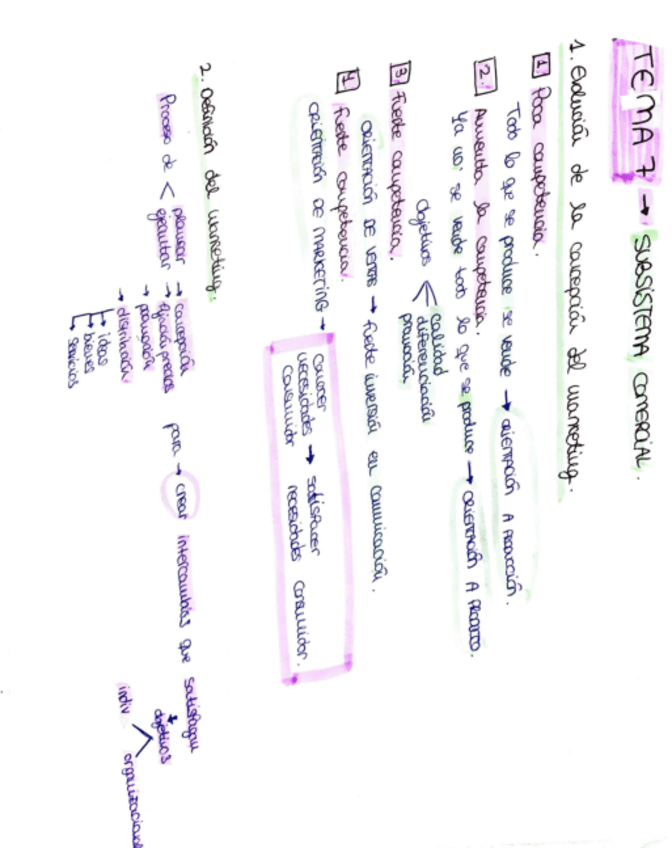 TEMA 7 → SUBSISTEMA COMERCIAL.
1. Evolución de la concepción del marketing.
1 Poca competencia.
Todo lo que se produce se vende → ORIENTACIÓN A PRODUCCIÓN.
2. Aumenta la competencia.
Ya no se vende todo lo que se produce → ORIENTACIÓN A PRODUCTO.
Objetivos < calidad
diferenciación
promoción
3 Fuerte competencia.
ORIENTACIÓN DE VENTAS → fuerte inversión en comunicación.
4 Fuerte competencia.
ORIENTACIÓN DE MARKETING → Conocer necesidades consumidor → satisfacer necesidades consumidor.
2. Definición del marketing.
Proceso de < planear
ejecutar
→ concepción
→ fijación precios
→ promoción
→ distribución
→ ideas
→ bienes
→ servicios
para → crear intercambios que satisfagan
objetivos
indiv
organizacional